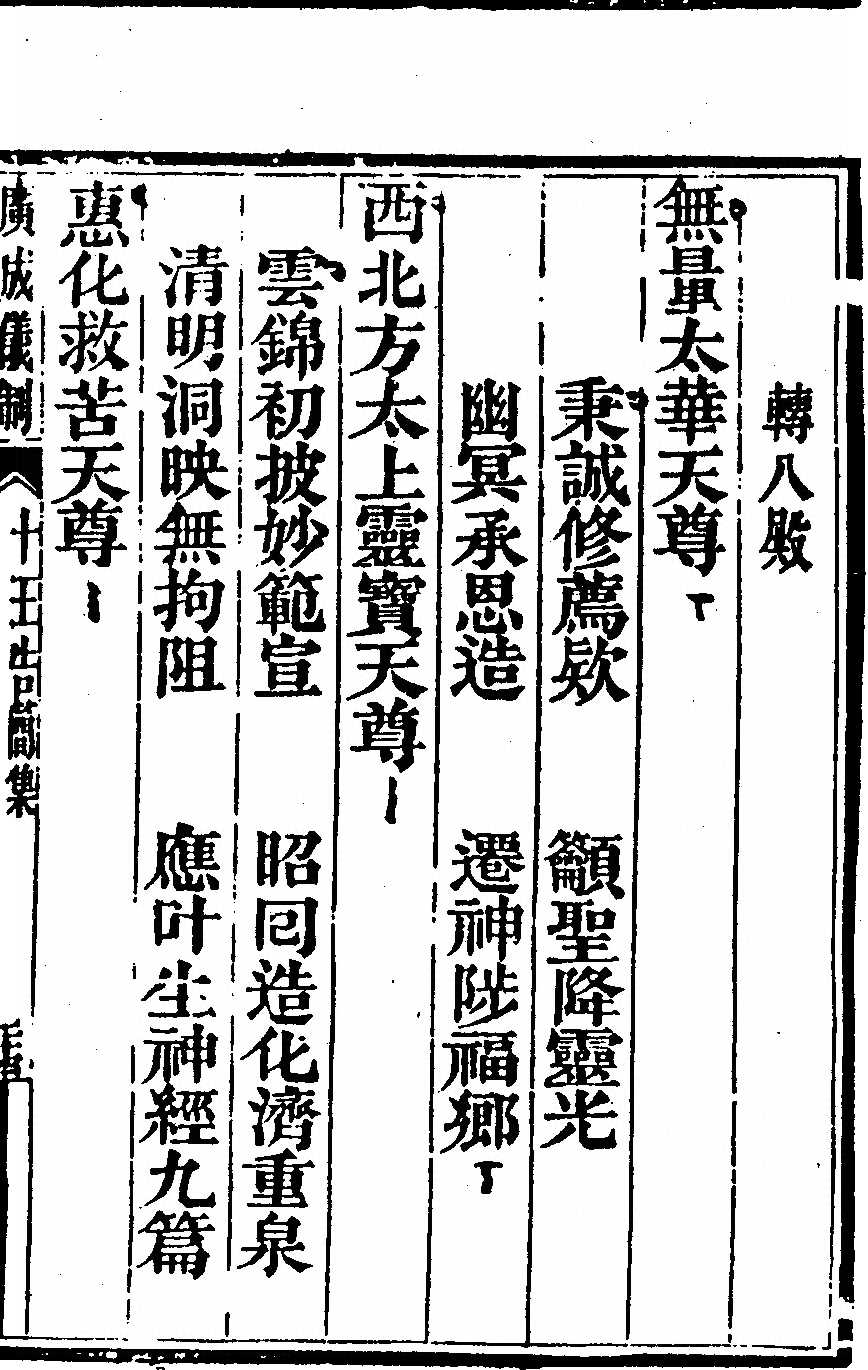 轉八殿
無量太華天尊
秉誠修薦欵　籲聖降靈光
幽冥承恩造　遷神陟福鄉
西北方太上靈寶天尊
雲錦初披妙範宣　昭囘造化濟重泉
清明洞映無拘阻　應叶生神經九篇
惠化救苦天尊
廣成儀制　十王告簡集